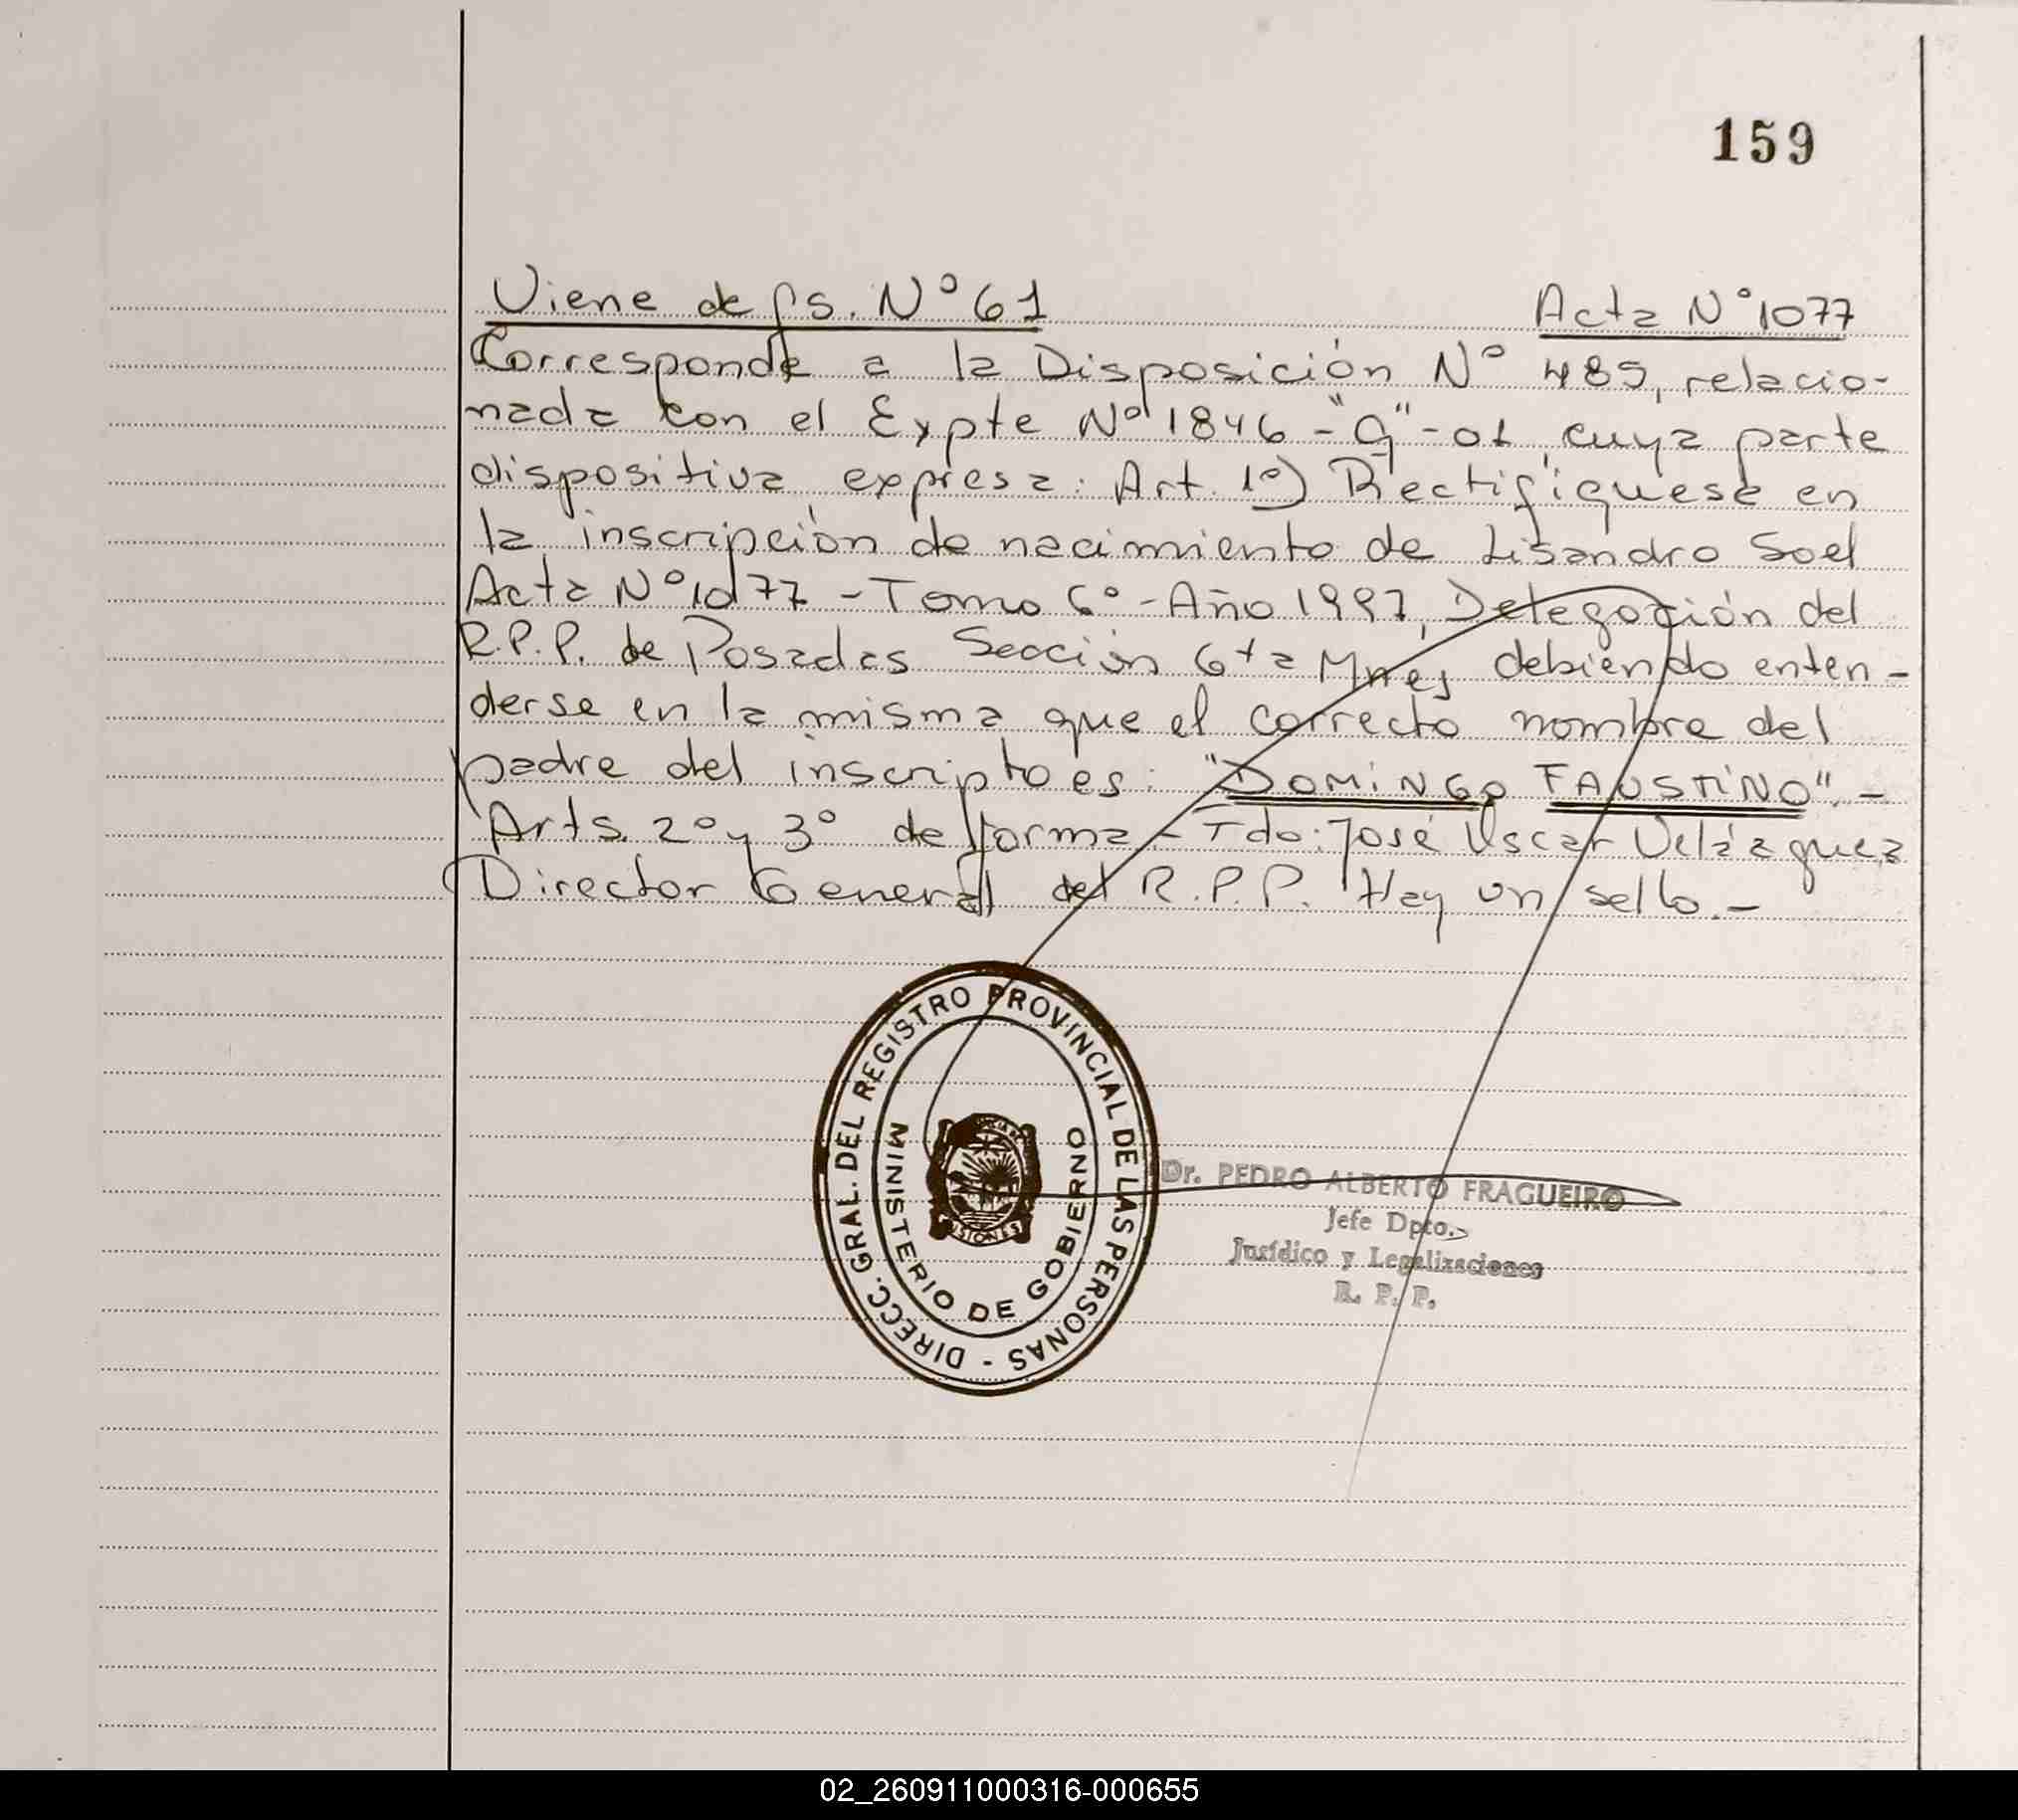 159
Viene de fs. Nº 61 Acta Nº 1077
Corresponde a la Disposición Nº 485, relacio-
nada con el Expte Nº 1846 -"G"- 01, cuya parte
dispositiva expresa: Art. 1º) Rectifíquese en
la inscripción de nacimiento de Lisandro Soel
Acta Nº 1077 - Tomo 6º - Año 1997, Delegación del
R.P.P. de Posadas Sección 6ta Mnes debiendo enten-
derse en la misma que el correcto nombre del
padre del inscripto es: "DOMINGO FAUSTINO". -
Arts. 2º y 3º de forma - Fdo: José Oscar Velázquez
Director General del R.P.P. Hay un sello. -
DIRECC. GRAL. DEL REGISTRO PROVINCIAL DE LAS PERSONAS -
MINISTERIO DE GOBIERNO
MISIONES
Dr. PEDRO ALBERTO FRAGUEIRO
Jefe Dpto.
Jurídico y Legalizaciones
R. P. P.
02_260911000316-000655